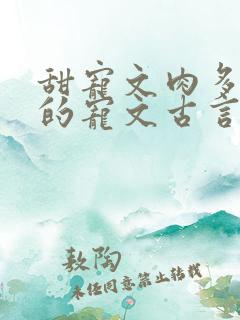 甜寵文肉多
的寵文古言
敖陶
未任同意禁止转载